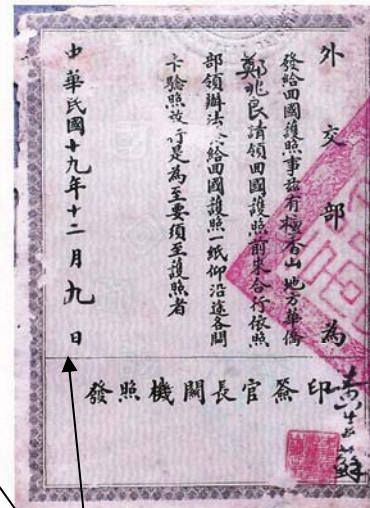 外交部為
發給回國護照事茲有檀香山地方華僑
鄭兆良請領回國護照前來合行依照
部領辦法給回國護照一紙仰沿途各關
卡驗照放行是為至要須至護照者
中華民國十九年十二月九日
發照機關長官簽印
蘇